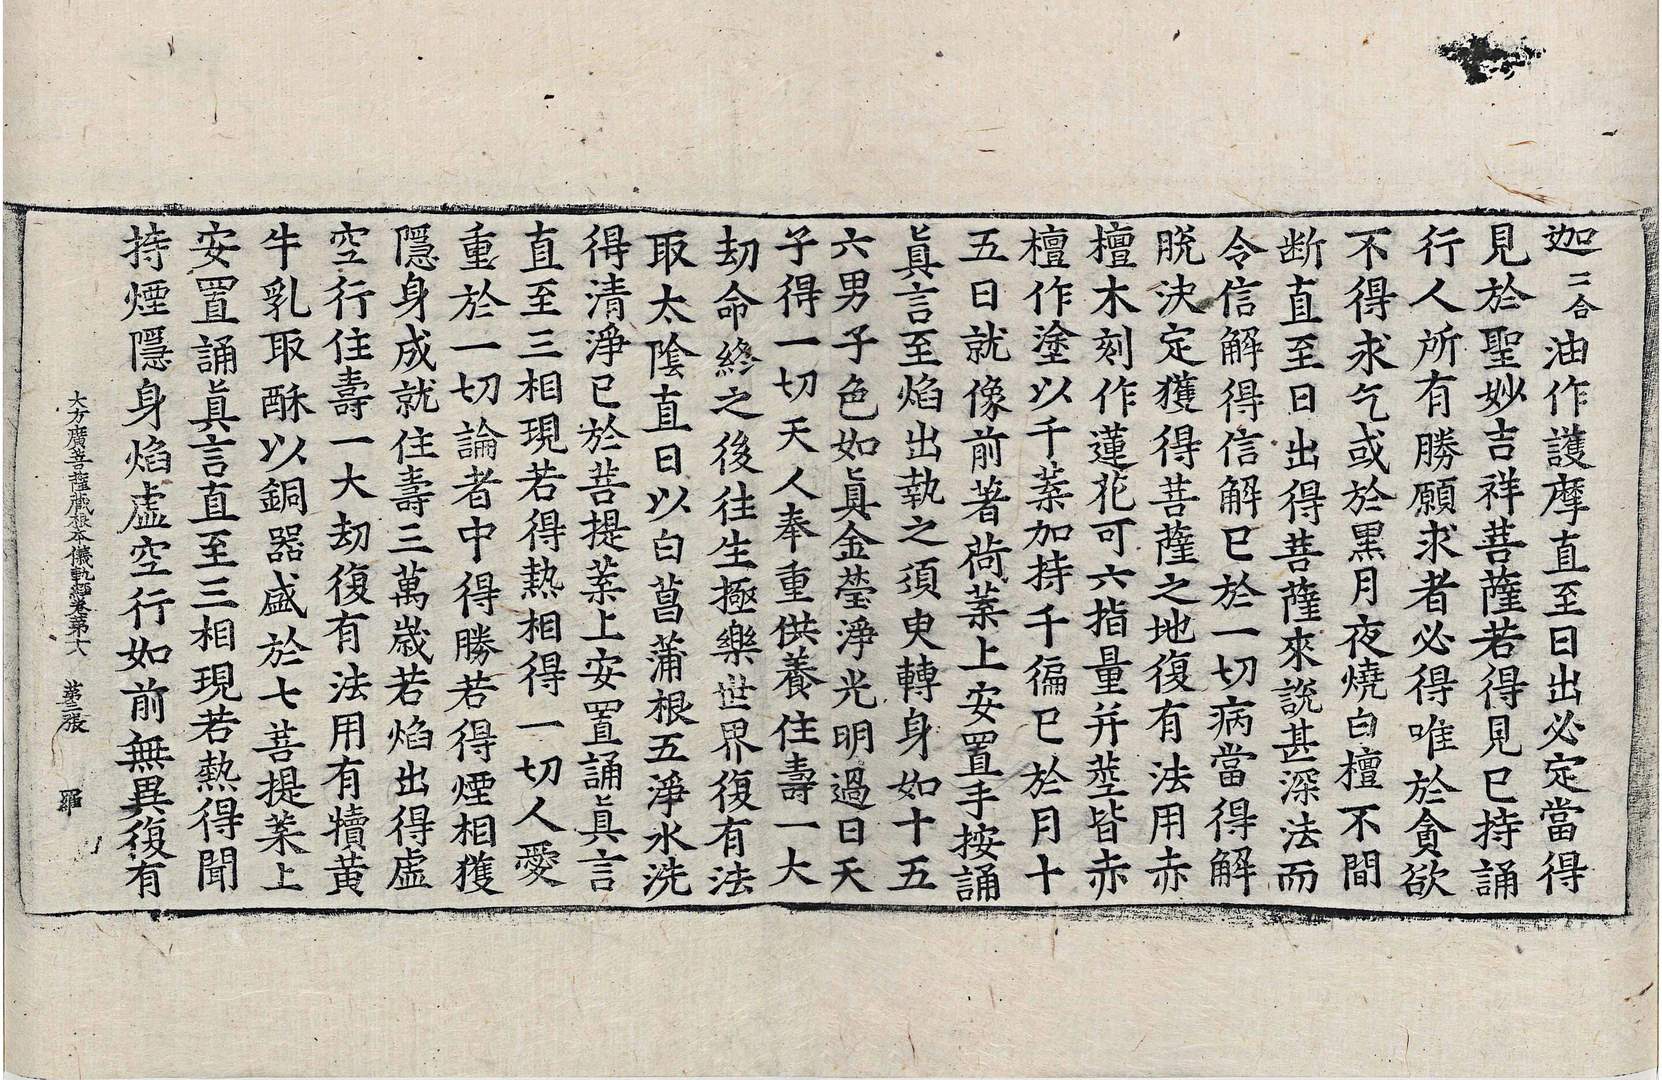 迦二合油作護摩直至日出必定當得
見於聖妙吉祥菩薩若得見已持誦
行人所有勝願求者必得唯於貪欲
不得求乞或於黒月夜燒白檀不間
断直至日出得菩薩來說甚深法而
令信解得信解已於一切病當得解
脫決定獲得菩薩之地復有法用赤
檀木刻作蓮花可六指量并莖皆赤
檀作塗以千葉加持千徧已於月十
五日就像前著荷葉上安置手按誦
眞言至焰出執之須臾轉身如十五
六男子色如眞金瑩淨光明過日天
子得一切天人奉重供養住壽一大
劫命終之後往生極樂世界復有法
取太陰直日以白菖蒲根五淨水洗
得清淨已於菩提葉上安置誦眞言
直至三相現若得熱相得一切人愛
重於一切論者中得勝若得煙相獲
隱身成就住壽三萬歳若焰出得虛
空行住壽一大劫復有法用有犢黄
牛乳取酥以銅器盛於七菩提葉上
安置誦眞言直至三相現若熱得聞
持煙隱身焰虛空行如前無異復有
大方廣菩薩藏根本儀軌經卷第十六 第三張 羅